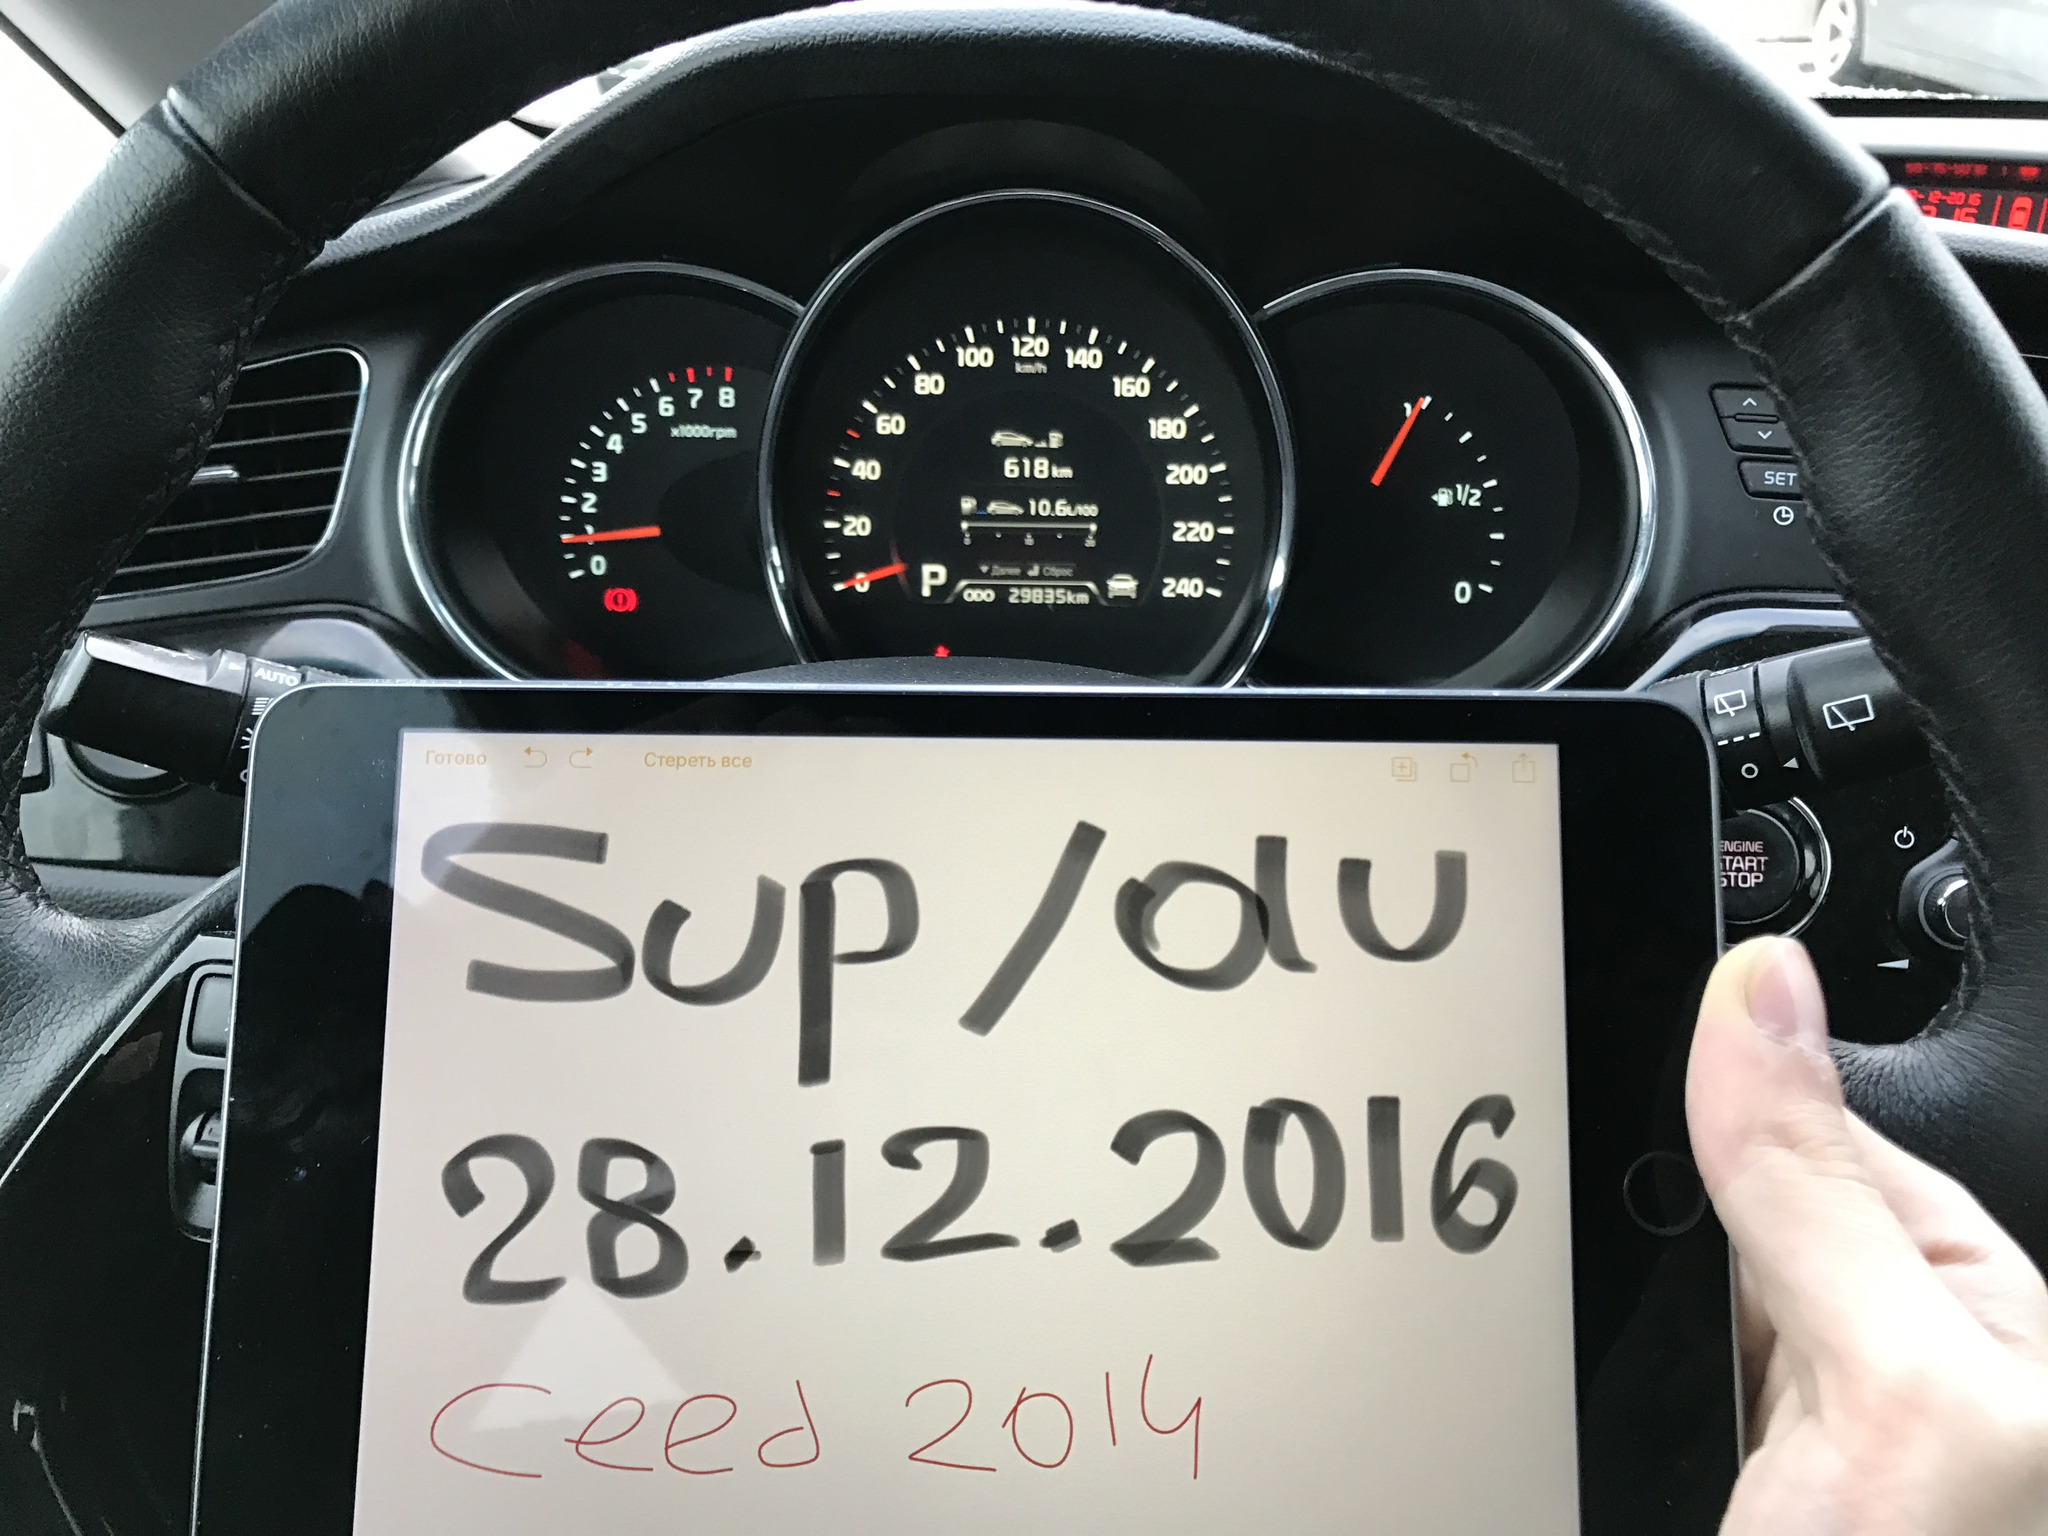 8
7
6
5
4
3
2
1
0
x1000rpm
0
20
40
60
80
100
120
140
160
180
200
220
240
km/h
618 km
10.6 L/100
Далее
Сброс
P
ODO 29835km
1
1/2
0
SET
AUTO
ENGINE
START
STOP
Готово
Стереть все
Sup/du
28.12.2016
Ceed 2014